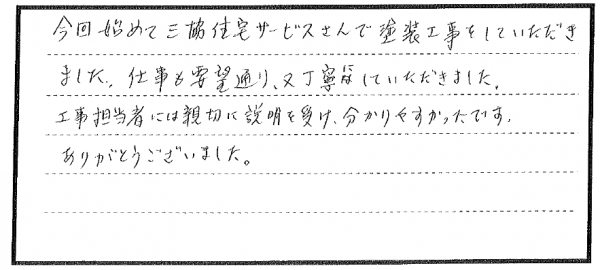 今回始めて三協住宅サービスさんで塗装工事をしていただき
ました。仕事も要望通り、又丁寧にしていただきました。
工事担当者には親切に説明を受け、分かりやすかったです。
ありがとうございました。